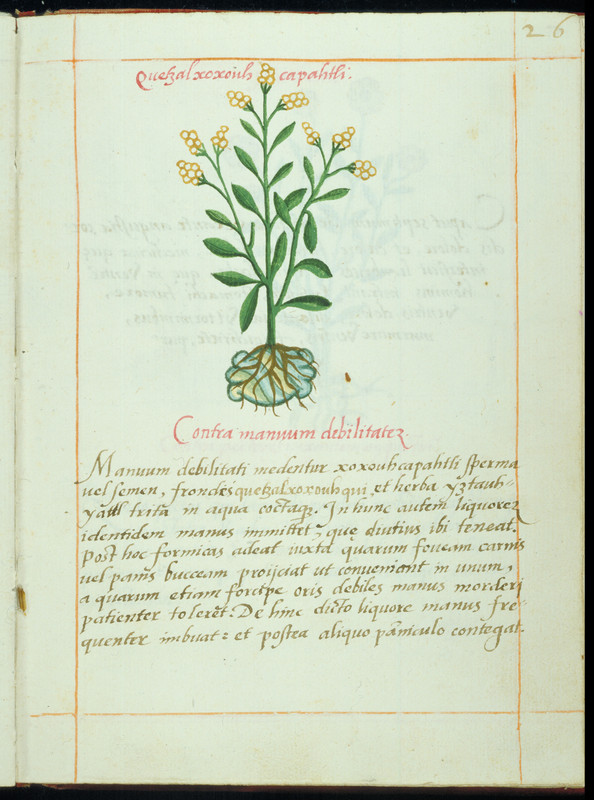 26
Quetzalxoxouh capahtli:
Contra manuum debilitatez
Manuum debilitati medentur xoxouhcapahtli sperma
vel semen, frondes quetzalxoxouhqui et herba yztauh-
yattl trita in aqua coctaq3. In hunc autem liquorez
identidem manus immittet, quę diutius ibi teneat.
Post hoc formicas adeat iuxta quarum foveam carnis
vel panis bucceam proijciat ut conveniant in unum,
a quarum etiam forcipe oris debiles manus morderi
patienter toleret. De hinc dicto liquore manus fre-
quenter imbuat: et postea aliquo pāniculo contegat.